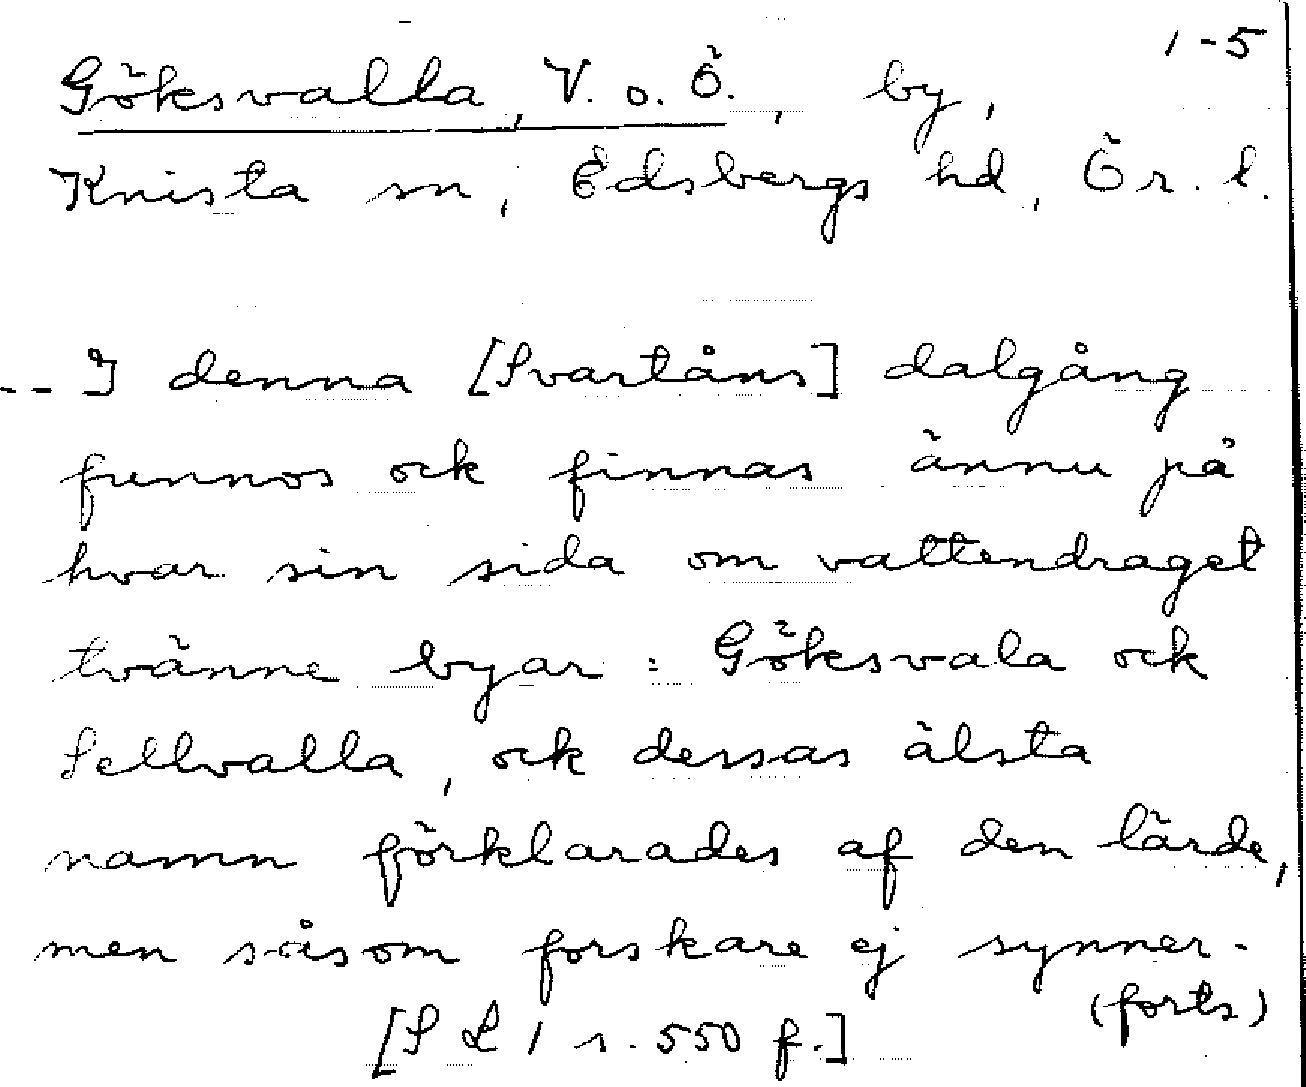 1-5
Göksvalla, V. o. Ö., by,
Knista sn, Edsbergs hd, Ör. l.
-- I denna [Svartåns] dalgång
funnos ock finnas ännu på
hvar sin sida om vattendraget
tvänne byar: Göksvala ock
Sellvalla, ock dessas älsta
namn förklarades af den lärde,
men såsom forskare ej synner-
(forts)
[S L 1 s. 550 f.]